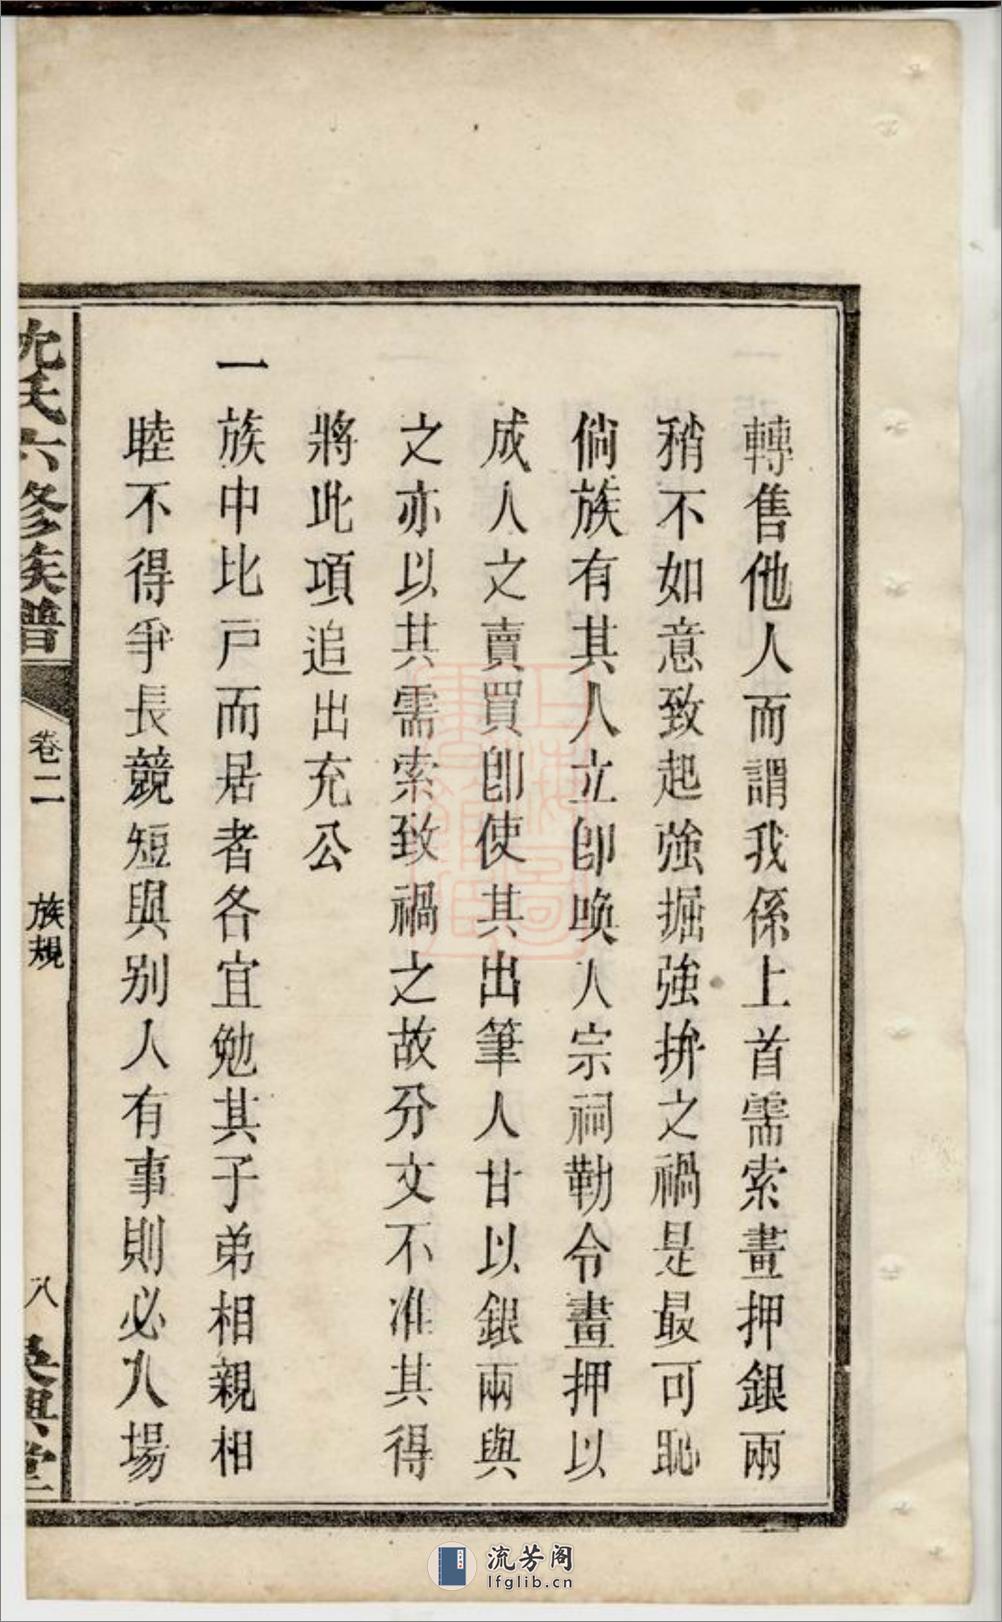 轉售他人而謂我係上首需索畫押銀兩
稍不如意致起強掘強拚之禍是最可恥
倘族有其人立卽喚入宗祠勒令畫押以
成人之賣買卽使其出筆人甘以銀兩與
之亦以其需索致禍之故分文不准其得
將此項追出充公
一族中比戶而居者各宜勉其子弟相親相
睦不得爭長競短與別人有事則必入場
沈氏六修族譜
卷二
族規
八
吳興堂
流芳阁
lfglib.cn